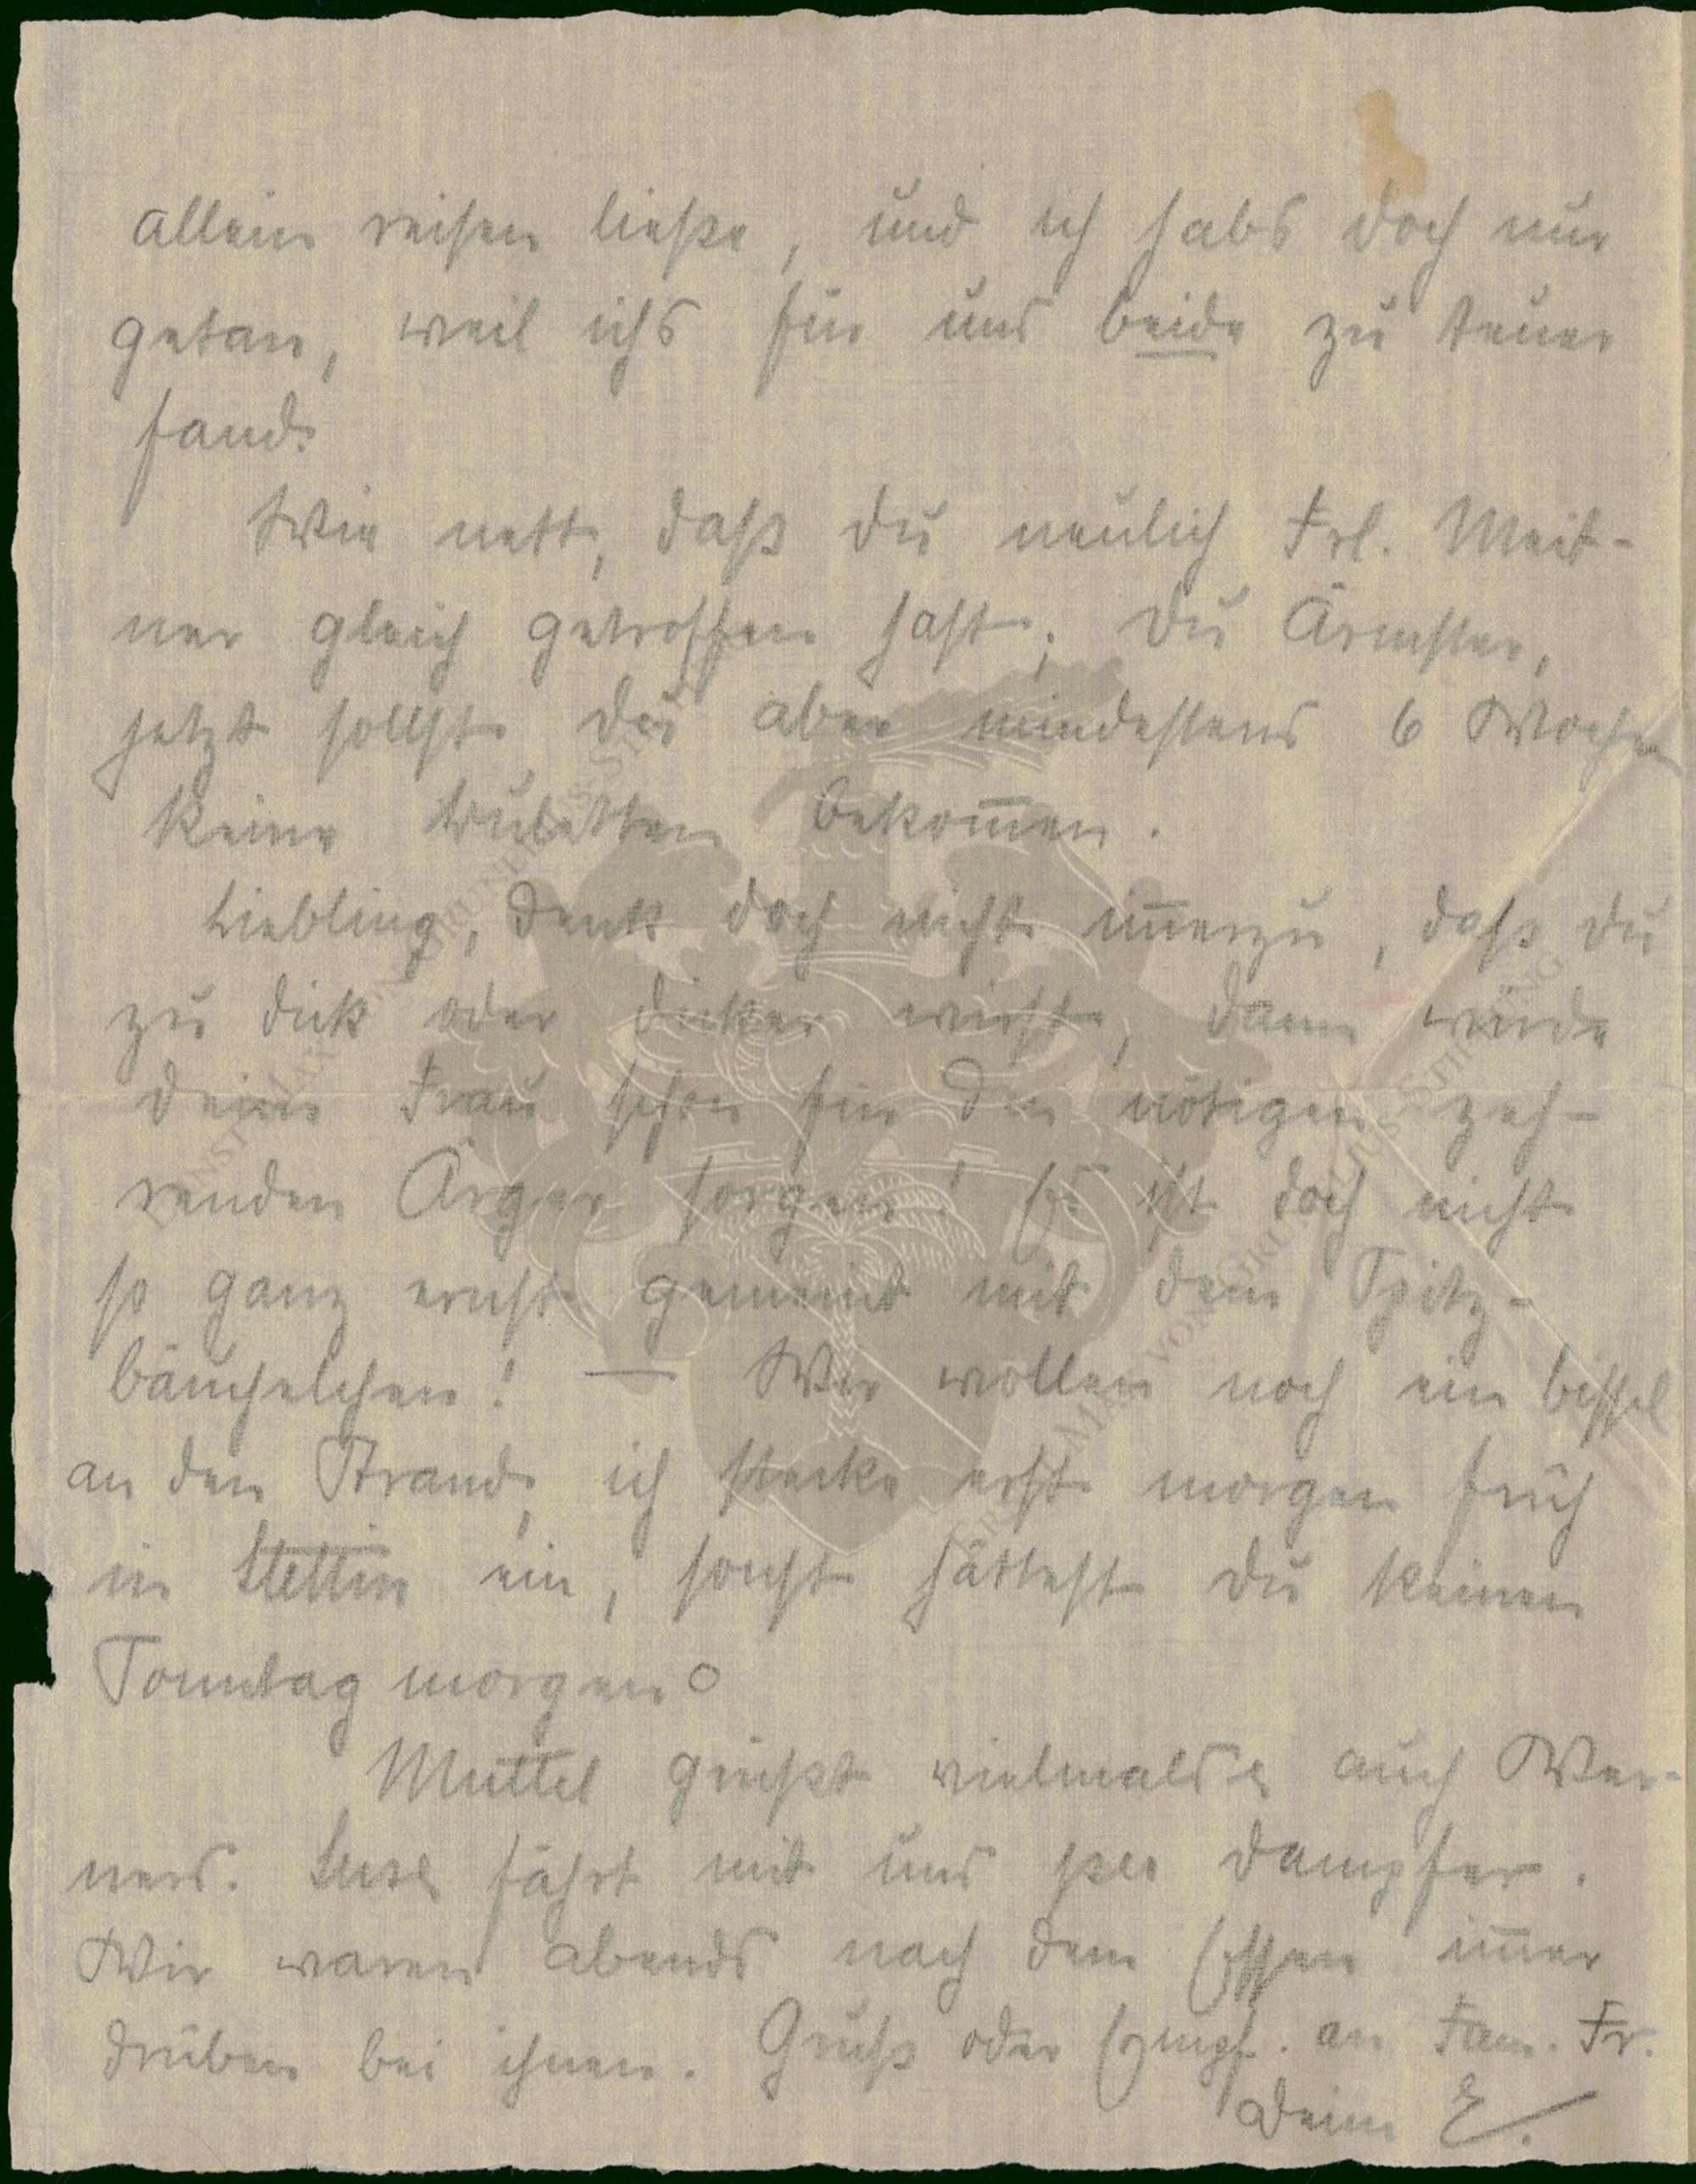 allein reisen liesse, und ich habs doch nur
getan, weil ichs für uns beide zu teuer
fand.
Wie nett, dass du neulich Frl. Meit-
ner gleich getroffen hast; du Ärmster,
jetzt sollst du aber mindestens 6 Wochen
keine bekom̅en.
Liebling, denk doch nicht im̅erzu, dass du
zu dick oder dicker wirst, dann würde
deine Frau schon für den nötigen zeh-
renden Ärger sorgen! Es ist doch nicht
so ganz ernst gemeint mit dem Spitz-
bäuchelchen! — Wir wollen noch ein bissel
an den Strand, ich stecke erst morgen früh
in Stettin ein, sonst hättest du keinen
Sonntag morgen
Muttel grüsst vielmals, auch Wer-
ners. Suse fährt mit uns per Dampfer.
Wir waren abends nach dem Essen im̅er
drüben bei ihnen. Gruss oder Empf. an Fam. Fr.
Deine E.